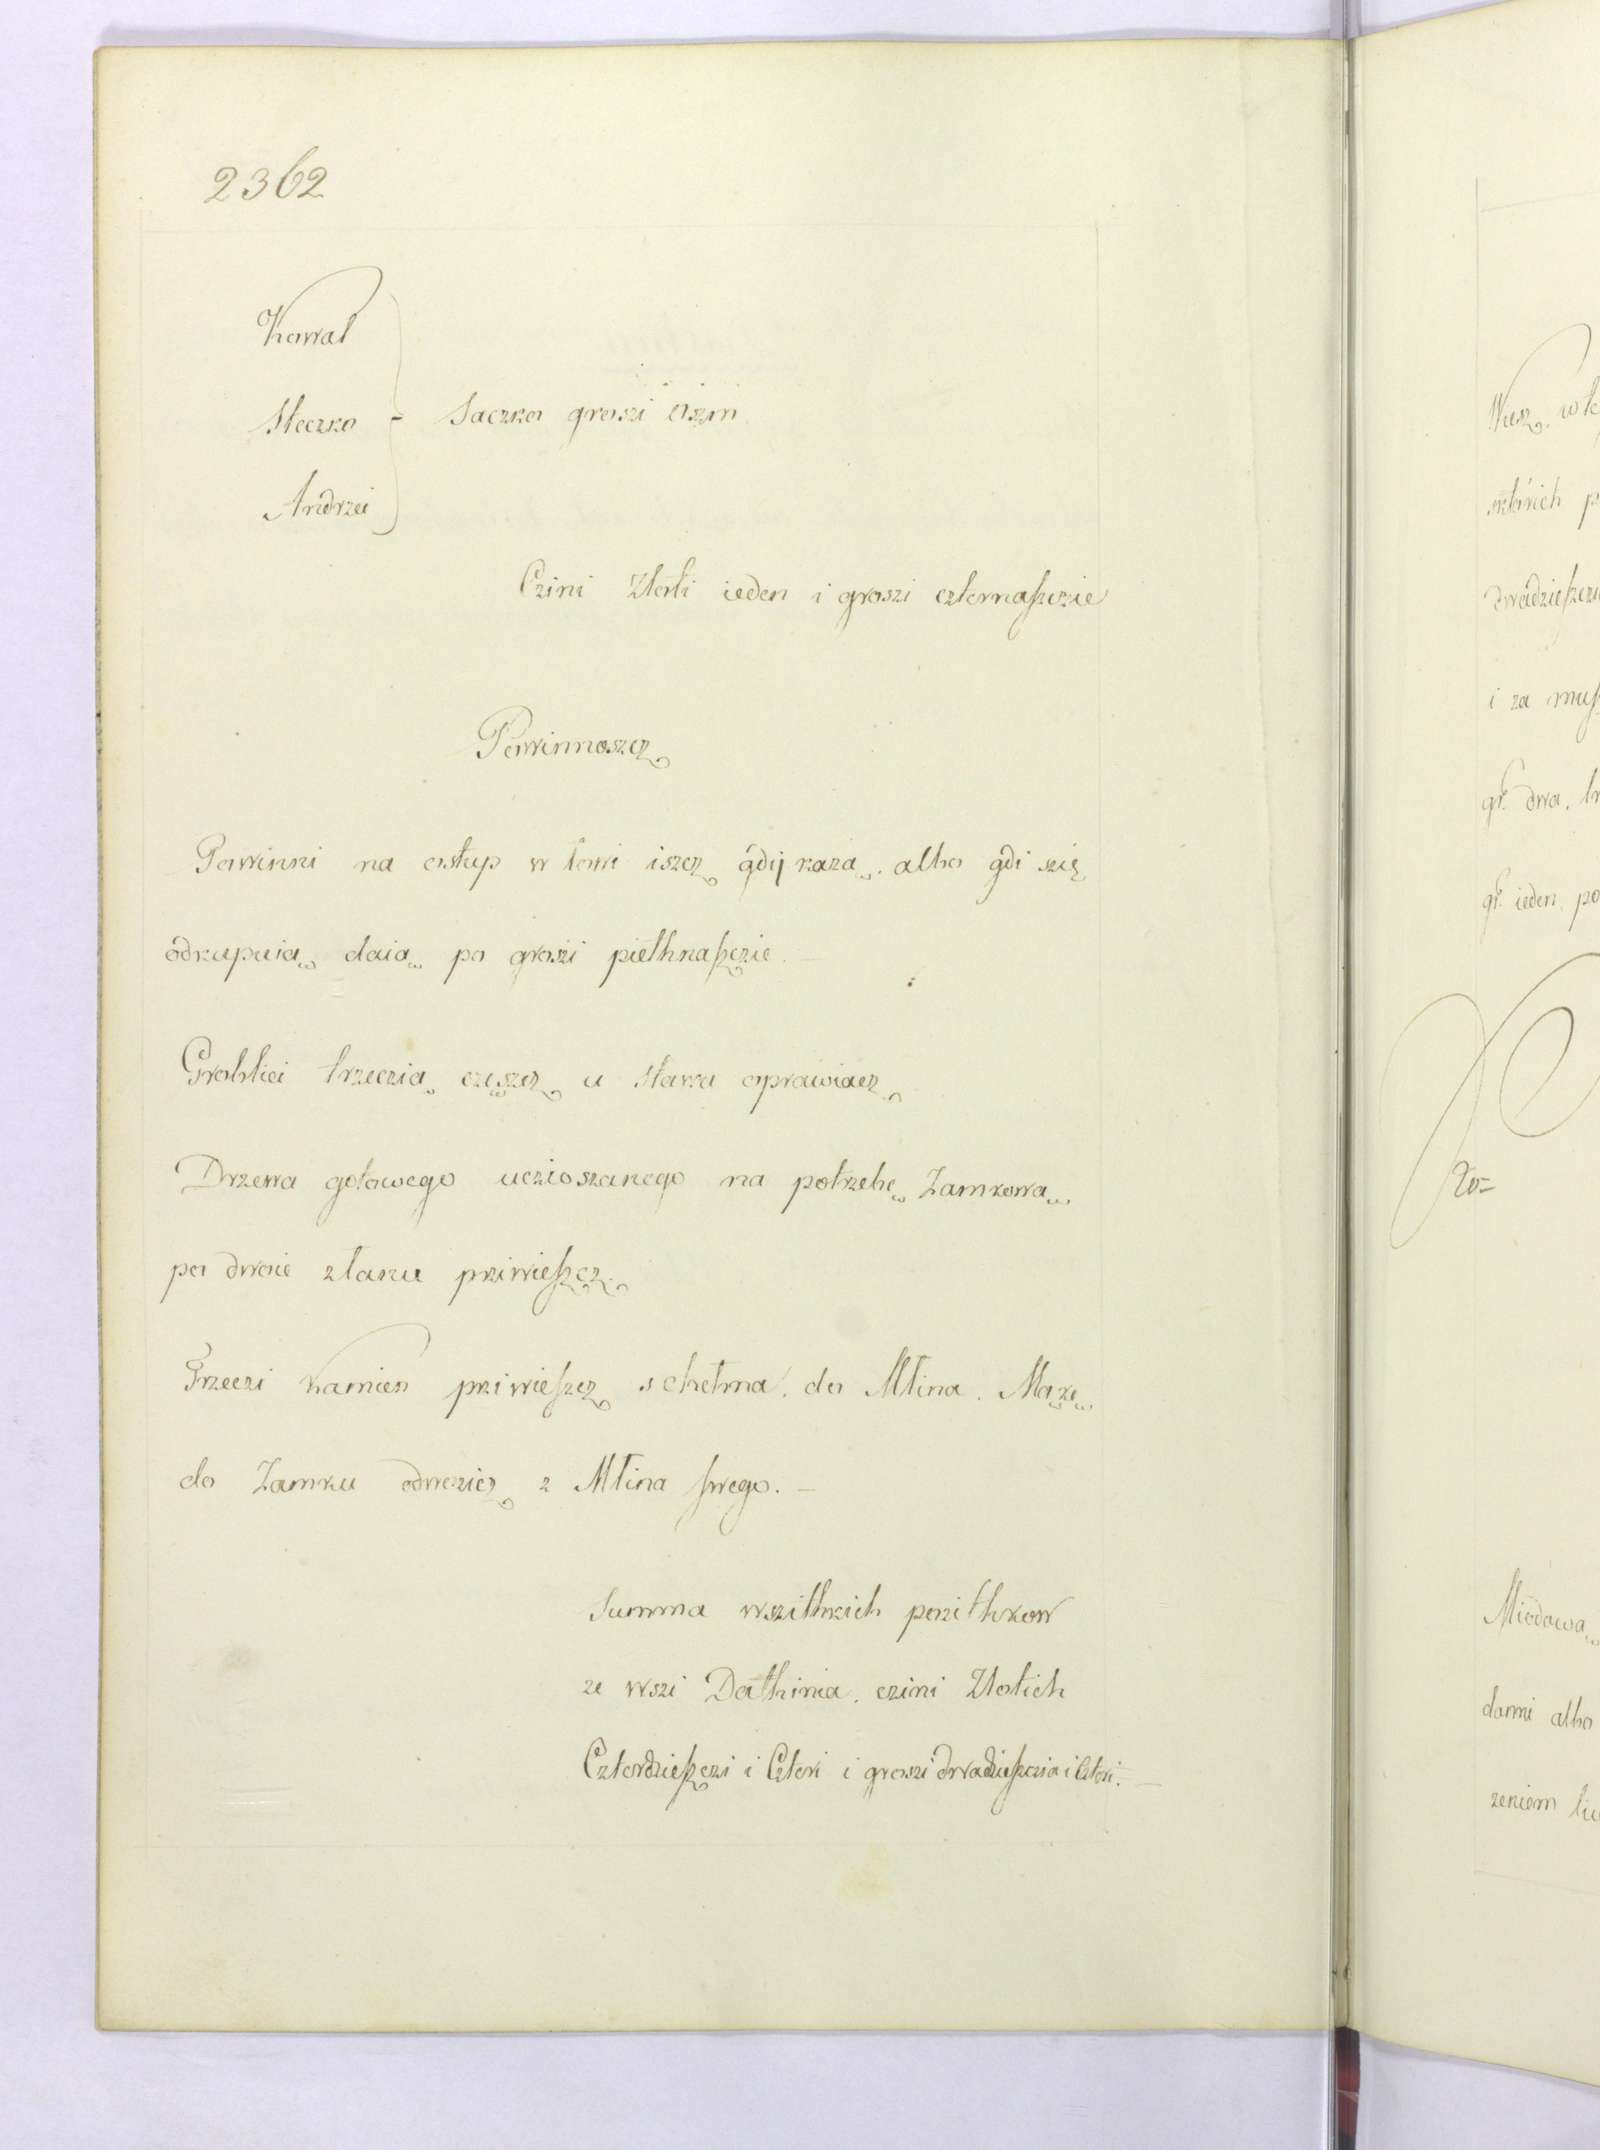 2362
Kowal
Steczko - Saczko groszi Oszm
Andrzei
Czini Złoti ieden i groszi czternasczie
Powinnoszcz
Powinni na ostup w łowi iszcz gdij każą. albo gdi szię
odkupuią daią po groszi piethnasczie. —
Grobliei trzeczią częszcz u stawu oprawiacz
Drzewa gotowego ucziosanego na potrzebę Zamkową
po dwoie z łanu priwieszcz.
Trzeczi kamien priwieszcz s chełma. do Młina. Mąkę
do Zamku odwezicz z Młina swego. —
Summa wszithkich pożithkow
ze wszi Dathinia. czini Złotich
Czterdzieszczi i Czteri i groszi dwadziesczia i Czteri. —
Wusz. w te
dwadzieszczi
i za
gr. dwa.
gr. ieden. po
Ro=
Miodową
dami albo
zeniem